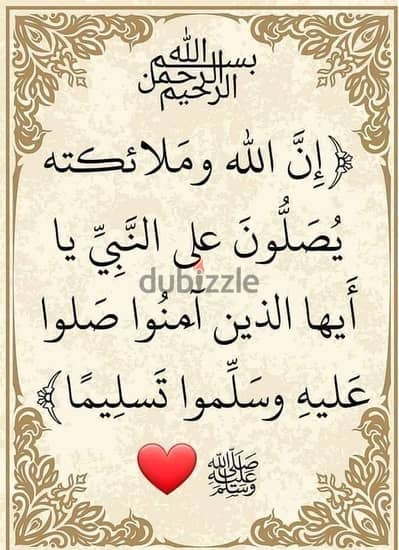 بسم الله
الرحمن
الرحيم
﴿إِنَّ الله ومَلائكته
يُصَلُّونَ على النَّبِيِّ يا
dubizzle
أَيها الذين آمنُوا صَلوا
عَليهِ وسَلِّموا تَسلِيمًا﴾
صلى الله عليه وسلم